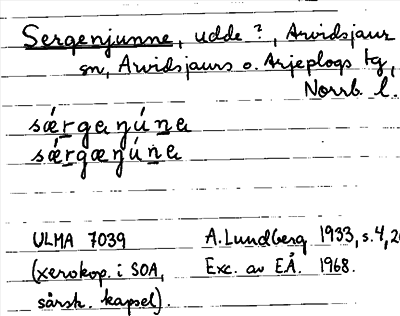 Sergenjunne, udde ?, Arvidsjaur
sn, Arvidsjaurs o. Arjeplogs tg,
Norrb. l.
sǽrgaŋúna
sǽrgæŋúna
ULMA 7039 A. Lundberg 1933, s. 4, 20
(xerokop. i SOA, Exc. av EÅ. 1968.
särsk. kapsel).